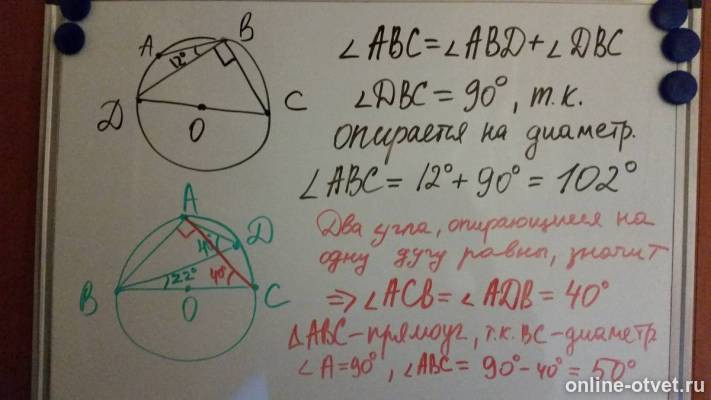 A
B
12°
D
O
C
∠ABC=∠ABD+∠DBC
∠DBC=90°, т.к.
опирается на диаметр.
∠ABC=12°+90°=102°
A
D
B
22°
40°
O
C
Два угла, опирающиеся на
одну дугу равны, значит
⇒∠ACB=∠ADB=40°
ΔABC-прямоуг, т.к. BC-диаметр
∠A=90°, ∠ABC=90°-40°=50°
online-otvet.ru